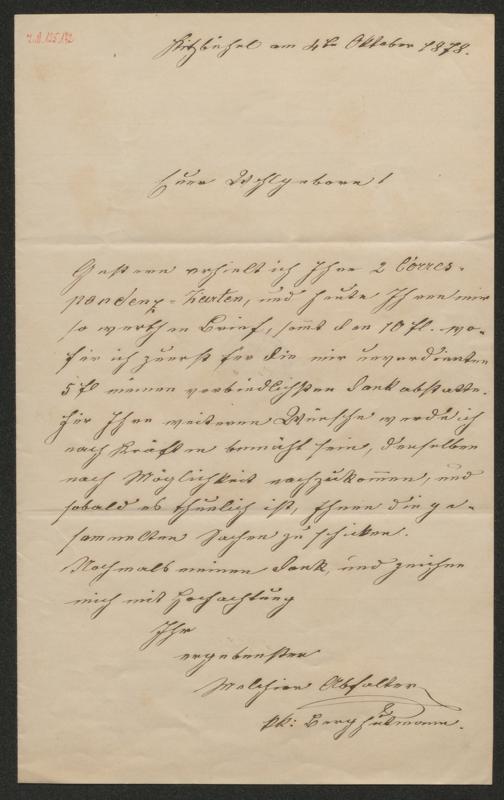 I.N. 125.132
Kitzbühel am 4ten Oktober 1878.
Euer Wohlgeboren!
Gestern erhielt ich Ihre 2 Corres-
pondenz-Karten, und heute Ihren mir
so werthen Brief, sammt den 10 fl. wo-
für ich zuerst für die mir unverdienten
5 fl meinen verbindlichsten Dank abstatte.
Für Ihre weiteren Wünsche werde ich
nach Kräften bemüht sein, denselben
nach Möglichkeit nachzukommen, und
sobald es thunlich ist, Ihnen die ge-
sammelten Sachen zu schicken.
Nochmals meinen Dank, und zeichne
mich mit Hochachtung
Ihr
ergebenster
Melchior Abfalter
kk: Berghutmann.